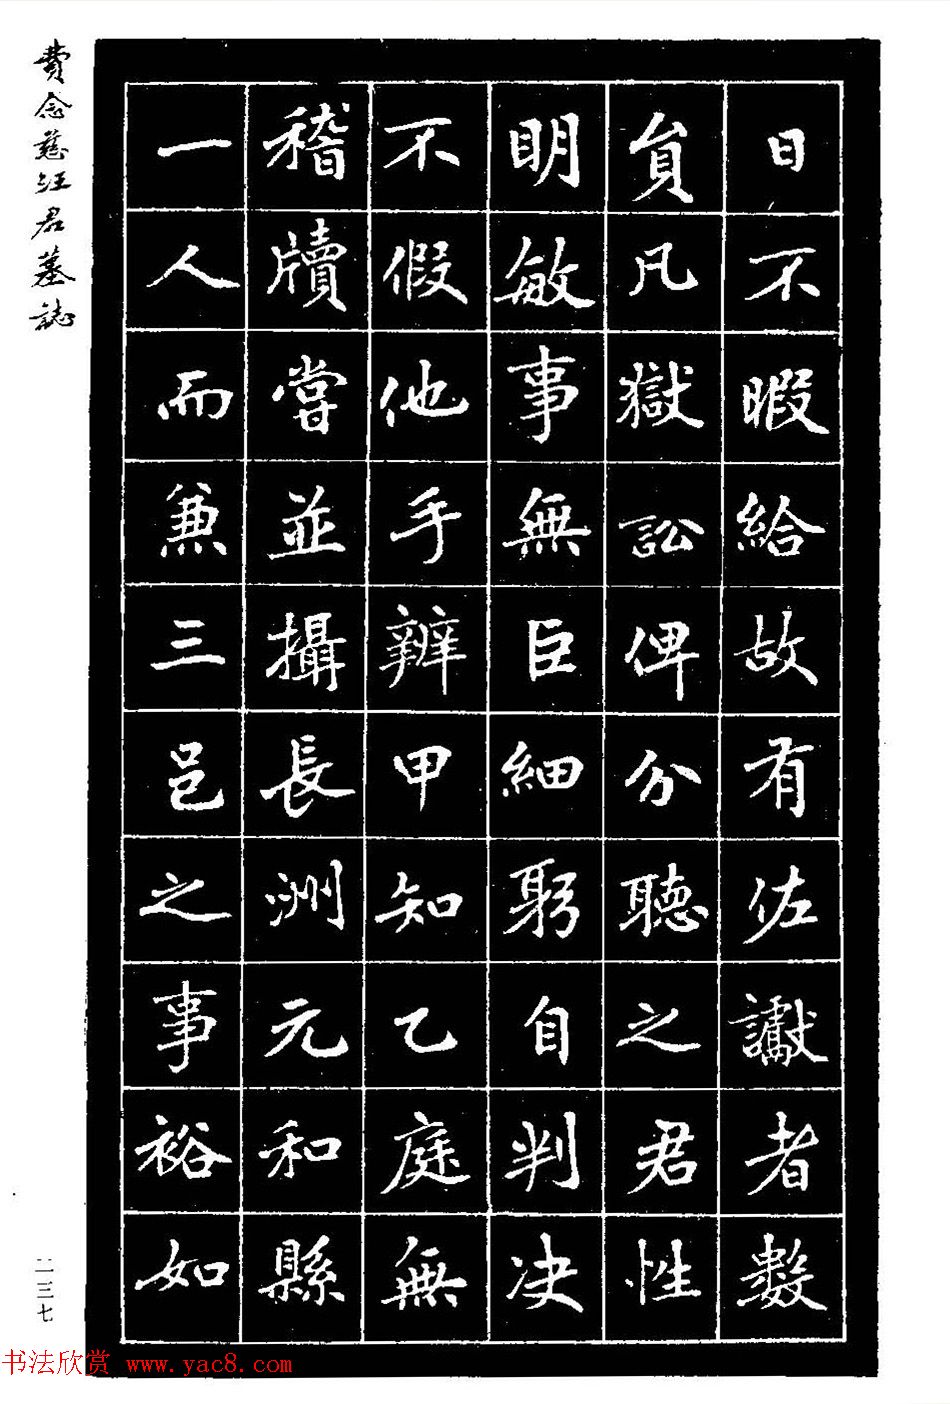 費念慈汪君墓誌
日不暇給故有佐讞者數
貟凡獄訟俾分聽之君性
明敏事無巨細躬自判决
不假他手辦甲知乙庭無
稽牘嘗並攝長洲元和縣
一人而兼三邑之事裕如
二三七
书法欣赏 www.yac8.com